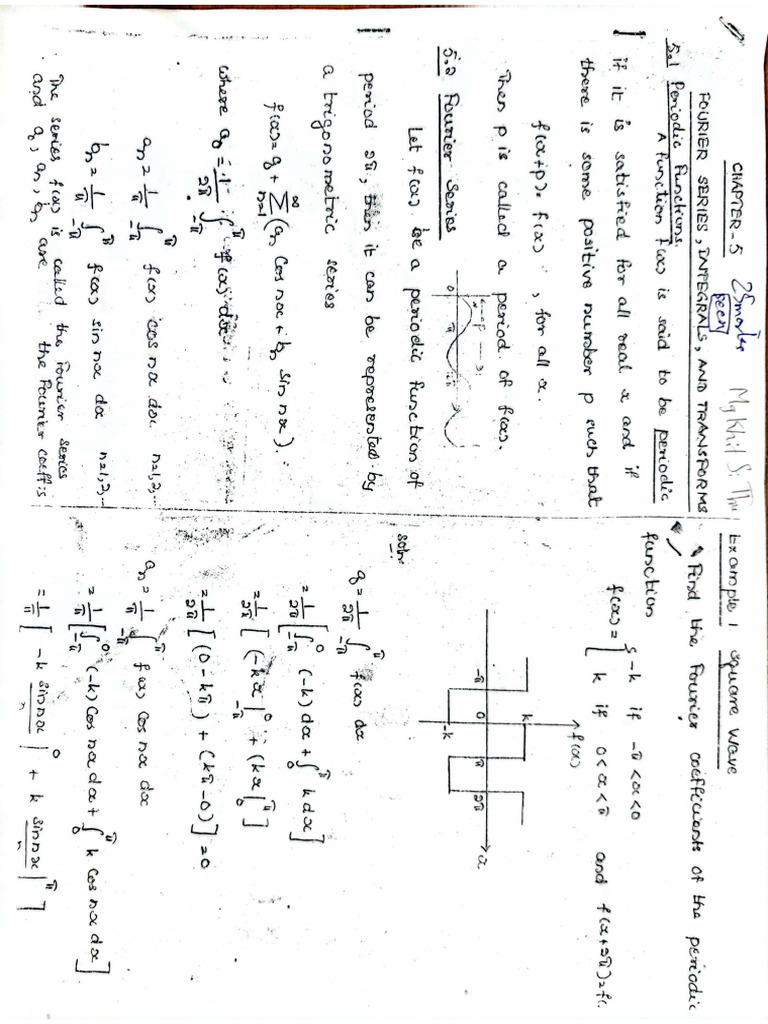 CHAPTER-5 25 marks
FOURIER SERIES, INTEGRALS, AND TRANSFORMS
5.1 Periodic Functions.
A function f(x) is said to be periodic
if it is satisfied for all real x and if
there is some positive number p such that
f(x+p) = f(x) , for all x.
Then p is called a period of f(x).
0 π 2π
p
5.2 Fourier Series
Let f(x) be a periodic function of
period 2π, then it can be represented by
a trigonometric series
f(x) = a₀ + ∞Σn=1 (aₙ cos nx + bₙ sin nx).
where a₀ = 1/2π ∫_{-π}^{π} f(x) dx
aₙ = 1/π ∫_{-π}^{π} f(x) cos nx dx n=1,2,...
bₙ = 1/π ∫_{-π}^{π} f(x) sin nx dx n=1,2,...
The series f(x) is called the Fourier series
and a₀, aₙ, bₙ are the Fourier coeff:s
Example 1 Square wave
Find the Fourier coefficients of the periodic
function
f(x) = { -k if -π<x<0
k if 0<x<π and f(x+2π)=f(
f(x)
k
-π 0 π 2π x
-k
Soln:
a₀ = 1/2π ∫_{-π}^{π} f(x) dx
= 1/2π [ ∫_{-π}^{0} (-k) dx + ∫_{0}^{π} k dx ]
= 1/2π [ (-kx|_{-π}^{0} + (kx|_{0}^{π} ]
= 1/2π [ (0-kπ) + (kπ-0) ] = 0
aₙ = 1/π ∫_{-π}^{π} f(x) cos nx dx
= 1/π [ ∫_{-π}^{0} (-k) cos nx dx + ∫_{0}^{π} k cos nx dx ]
= 1/π [ -k sin nx/n |_{-π}^{0} + k sin nx/n |_{0}^{π} ]